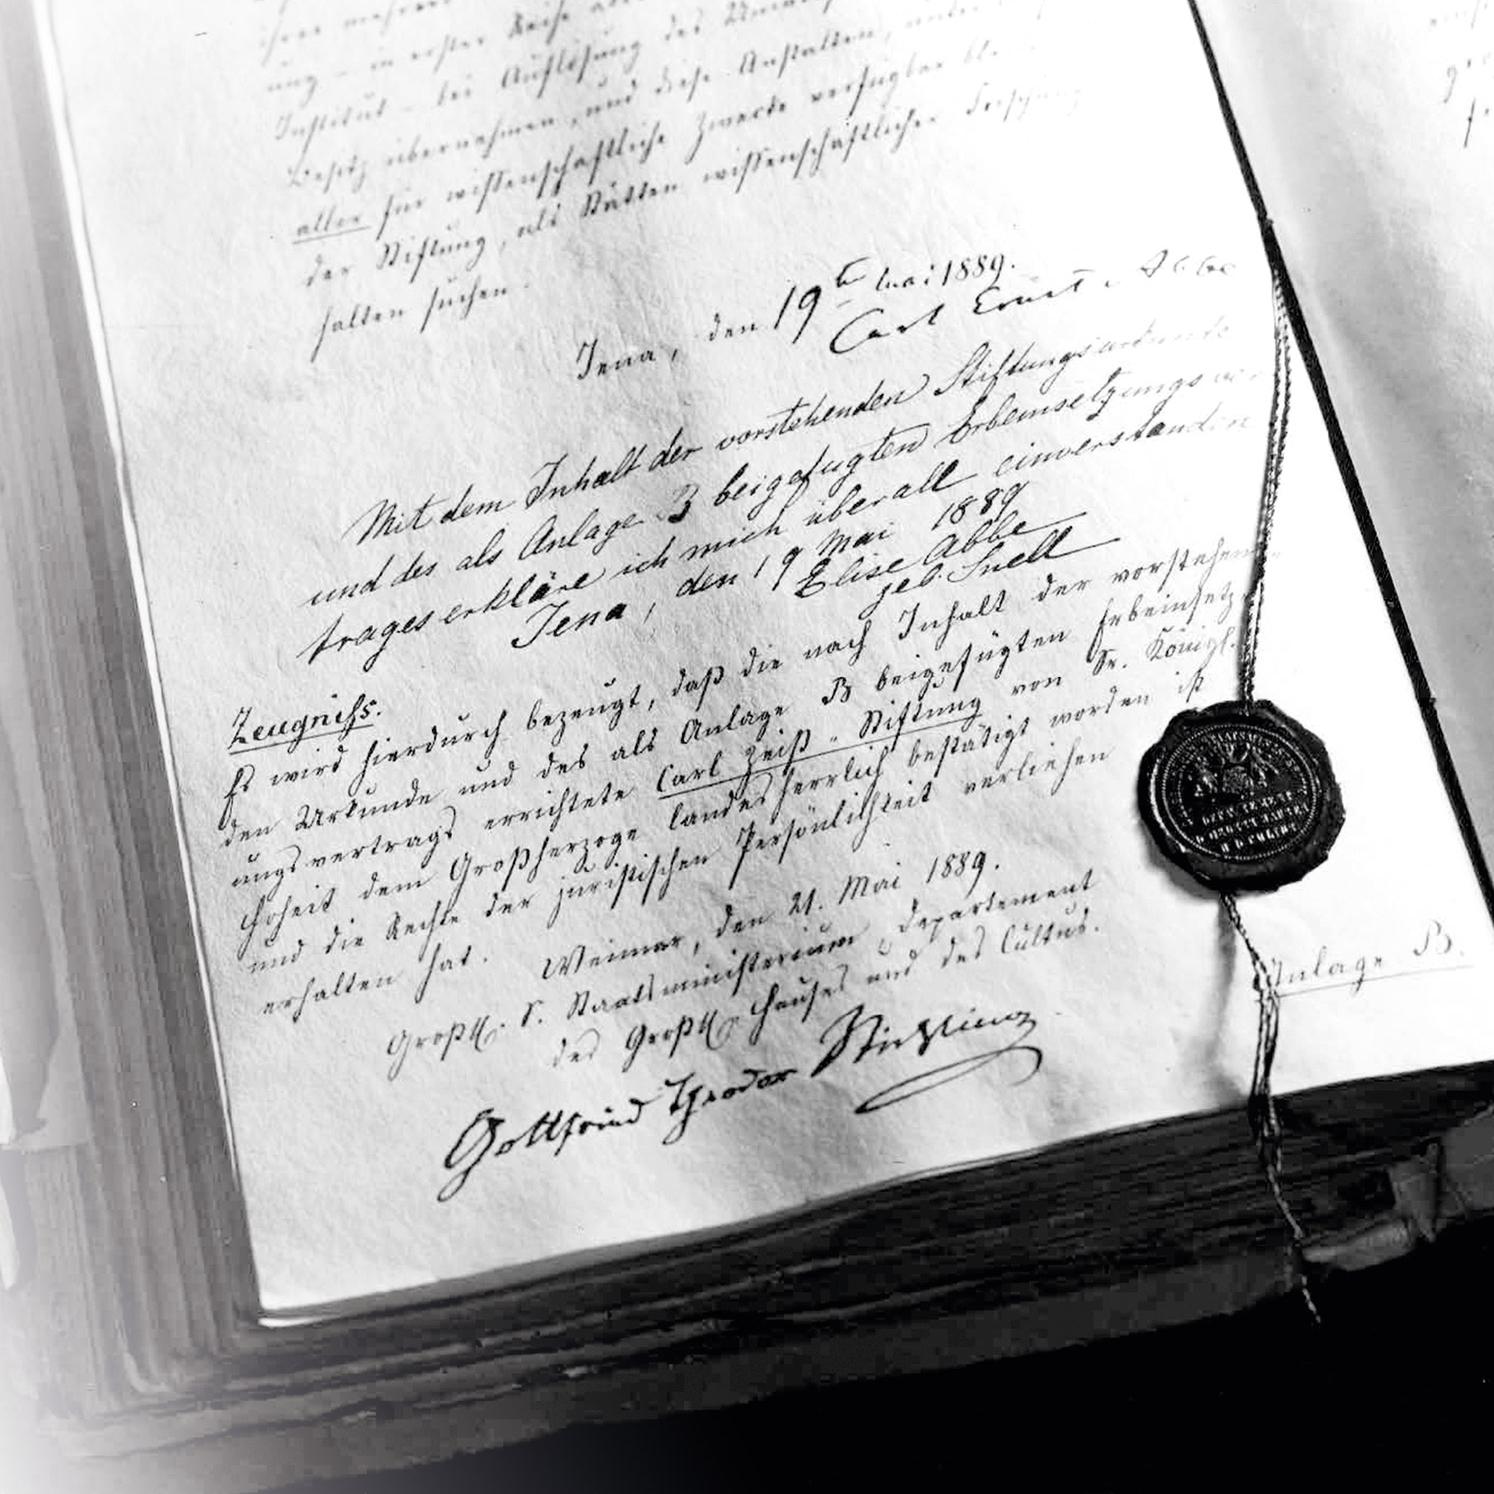 ihrer mehrere
ung - in erster Reihe
Institut - bei Auflösung des
Besitz übernehmen, und diese Anstalten, unter
aller für wissenschaftliche Zwecke verfügbar
der Stiftung, als Stätten wissenschaftlicher Forschung
halten suchen.
Jena, den 19t Mai 1889.
Carl Ernst Abbe
Mit dem Inhalt der vorstehenden Stiftungsurkunde
und des als Anlage B beigefügten Erbeinsetzungsver
trages erkläre ich mich überall einverstanden
Jena, den 19 Mai 1889
Elise Abbe
geb. Snell
Zeugniss.
Es wird hierdurch bezeugt, daß die nach Inhalt der vorstehen
den Urkunde und des als Anlage B beigefügten Erbeinsetz
ungsvertrags errichtete Carl Zeiß-Stiftung von Sr. Königl.
Hoheit dem Großherzoge landesherrlich bestätigt worden ist
und die Rechte der juristischen Persönlichkeit verliehen
erhalten hat.
Weimar, den 21. Mai 1889.
Großh. S. Staatsministerium, Departement
des Großh. Hauses und des Cultus.
Gottfried Theodor Stichling
Anlage B.